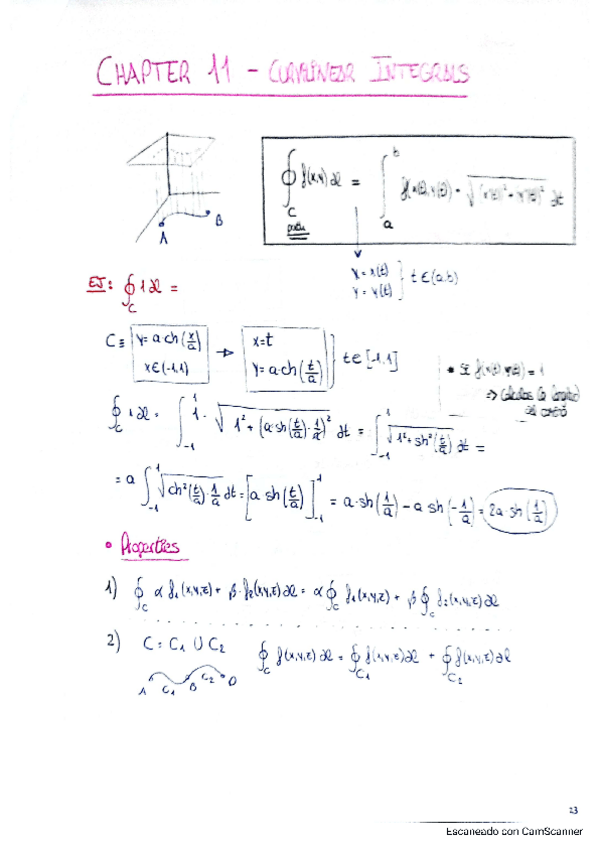 CHAPTER 11 - CURVILINEAR INTEGRALS
A B
∮_C f(x,y) dl = ∫_a^b f(x(t),y(t)) · √
path
x = x(t)
y = y(t) } t ∈ (a,b)
EJ: ∮_C 1 dl =
C ≡ y = a ch(x/a) x ∈ (-1,1) → x = t y = a·ch(t/a) } t ∈ [-1,1]
• Si f(x(t), y(t)) = 1
∮_C 1 dl = ∫_{-1}^{1} 1 · √(1² + (a·sh(t/a)·1/a)²) dt = ∫_{-1}^{1} √(1² + sh²(t/a)) dt =
= a ∫_{-1}^{1} √(ch²(t/a)) · 1/a dt = [a sh(t/a)]_{-1}^{1} = a·sh(1/a) - a sh(-1/a) = 2a·sh(1/a)
• Properties
1) ∮_C α f₁(x,y,z) + β·f₂(x,y,z) dl = α ∮_C f₁(x,y,z) + β ∮_C f₂(x,y,z) dl
2) C = C₁ ∪ C₂ ∮_C f(x,y,z) dl = ∮_{C₁} f(x,y,z) dl + ∮_{C₂} f(x,y,z) dl
A C₁ B C₂ D
23
Escaneado con CamScanner